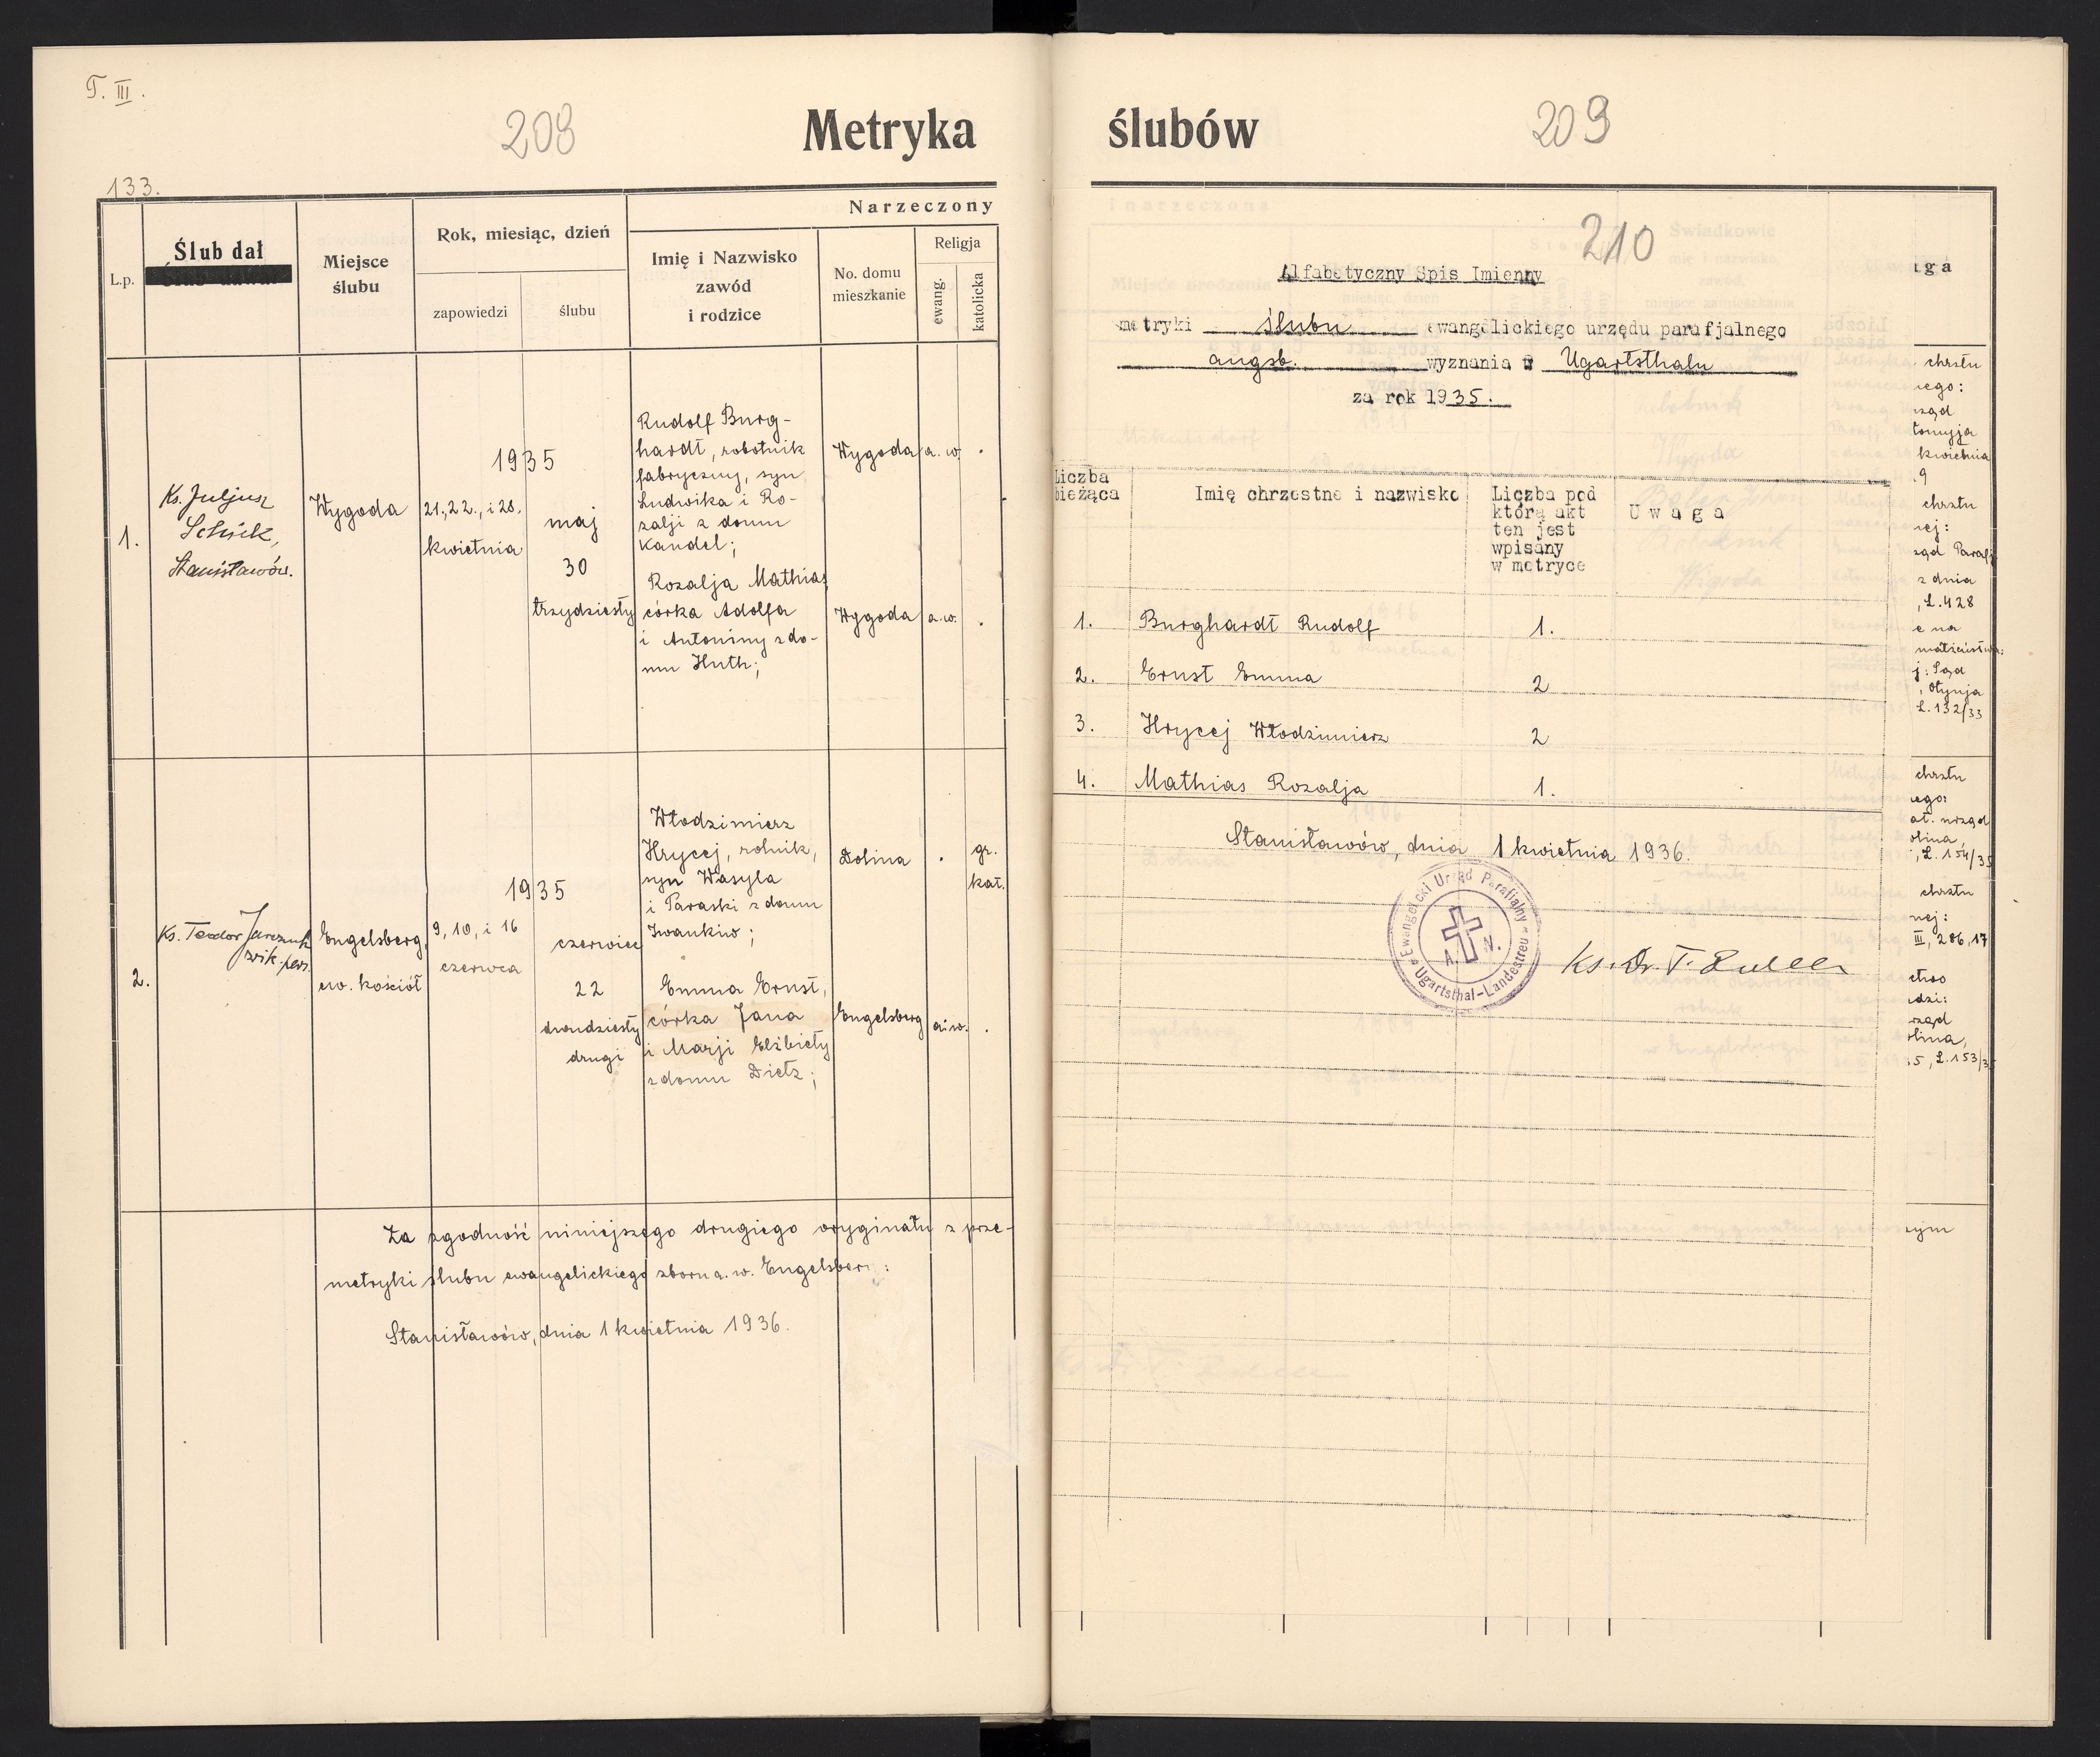 T. III.
208
Metryka
133.
L.p.
Ślub dał
Miejsce
ślubu
Rok, miesiąc, dzień
zapowiedzi
ślubu
Narzeczony
Imię i Nazwisko
zawód
i rodzice
No. domu
mieszkanie
Religja
ewang.
katolicka
1.
Ks. Juljusz
Schick,
Stanisławów.
Wygoda
1935
21., 22., i 28.
kwietnia
maj
30
trzydziesty
Rudolf Burg-
hardt, robotnik
fabryczny, syn
Ludwika i Ro-
zalji z domu
Kandel;
Wygoda
a. w.
.
Rozalja Mathias
córka Adolfa
i Antoniny z do-
mu Huth;
Wygoda
a. w.
.
2.
Ks. Teodor
Engelsberg,
ew. kościół
1935
9, 10, i 16
czerwca
czerwiec
22
dwudziesty
drugi
Włodzimierz
Hrycej, rolnik,
syn Wasyla
i Paraski z domu
Iwankiw;
Dolina
.
gr.
kat.
Emma Ernst,
córka Jana
i Marji Elżbiety
z domu Dietz;
Engelsberg
a. w.
.
Za zgodność niniejszego drugiego oryginału z prze-
metryki ślubu ewangelickiego zboru a. w. Engelsberg:
Stanisławów, dnia 1 kwietnia 1936.
ślubów
209
210
Alfabetyczny Spis Imienny
metryki ślubu ewangelickiego urzędu parafjalnego
augsb. wyznania w Ugartsthalu
za rok 1935.
Liczba
bieżąca
Imię chrzestne i nazwisko
Liczba pod
którą akt
ten jest
wpisany
w metryce
Uwaga
1. Burghardt Rudolf 1.
2. Ernst Emma 2
3. Hrycej Włodzimierz 2
4. Mathias Rozalja 1.
Stanisławów, dnia 1 kwietnia 1936.
Ewangelicki Urząd Parafialny
A. N.
Ugartsthal-Landestreu
Ks. Dr. T.
ga
chrztu
nego:
kwietnia
9
chrztu
nej:
z dnia
, L. 428
e na
j: Sąd
, Otynja
L. 132/33
chrztu
ego:
olina,
, L. 154/35
chrztu
nej:
III, 286, 17
ctwo
dzi:
rząd
olina,
5, L. 153/35
szym